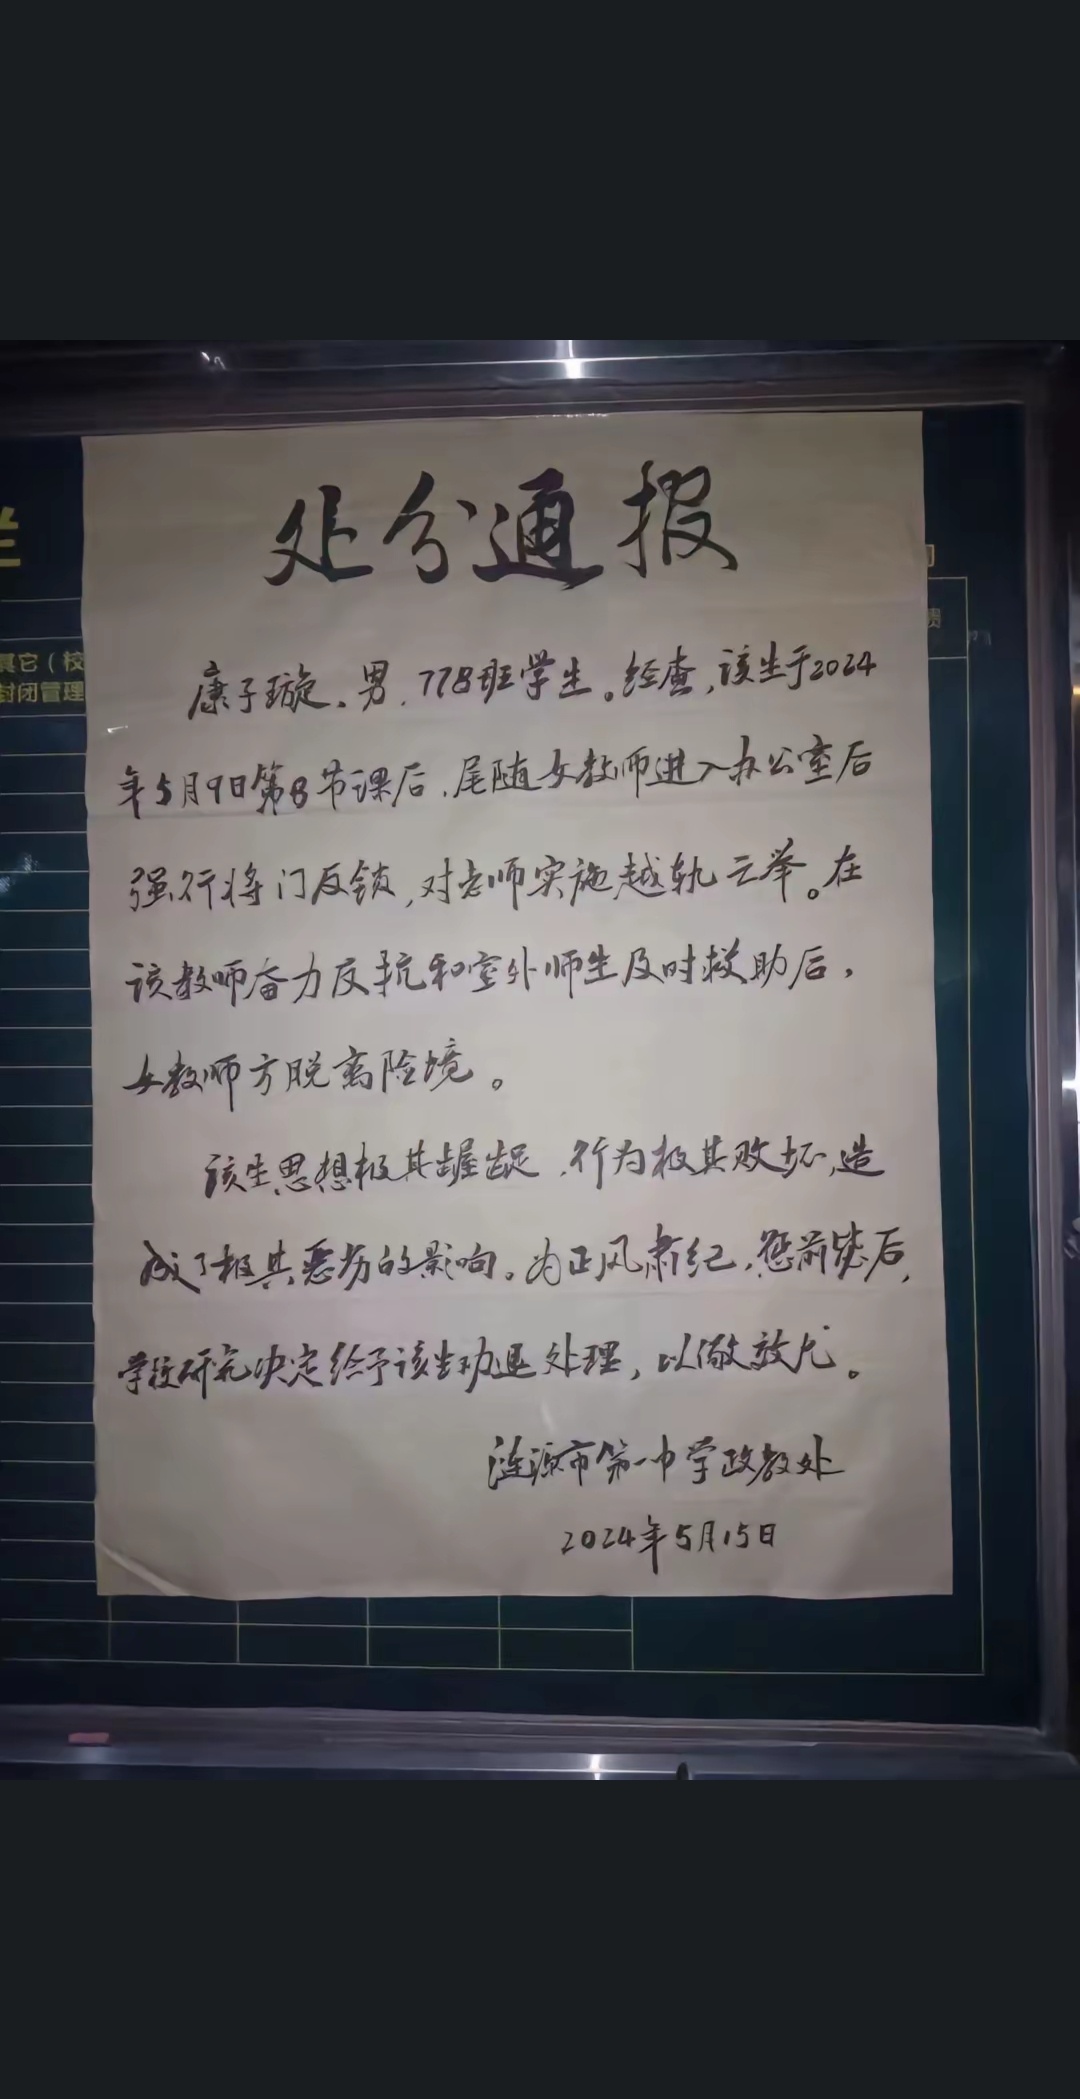 处分通报
康子璇，男，778班学生。经查，该生于2024
年5月9日第8节课后，尾随女教师进入办公室后
强行将门反锁，对老师实施越轨之举。在
该教师奋力反抗和室外师生及时救助后，
女教师方脱离险境。
该生思想极其龌龊，行为极其败坏，造
成了极其恶劣的影响。为正风肃纪，惩前毖后，
学校研究决定给予该生劝退处理，以儆效尤。
涟源市第一中学政教处
2024年5月15日
其它（校
封闭管理